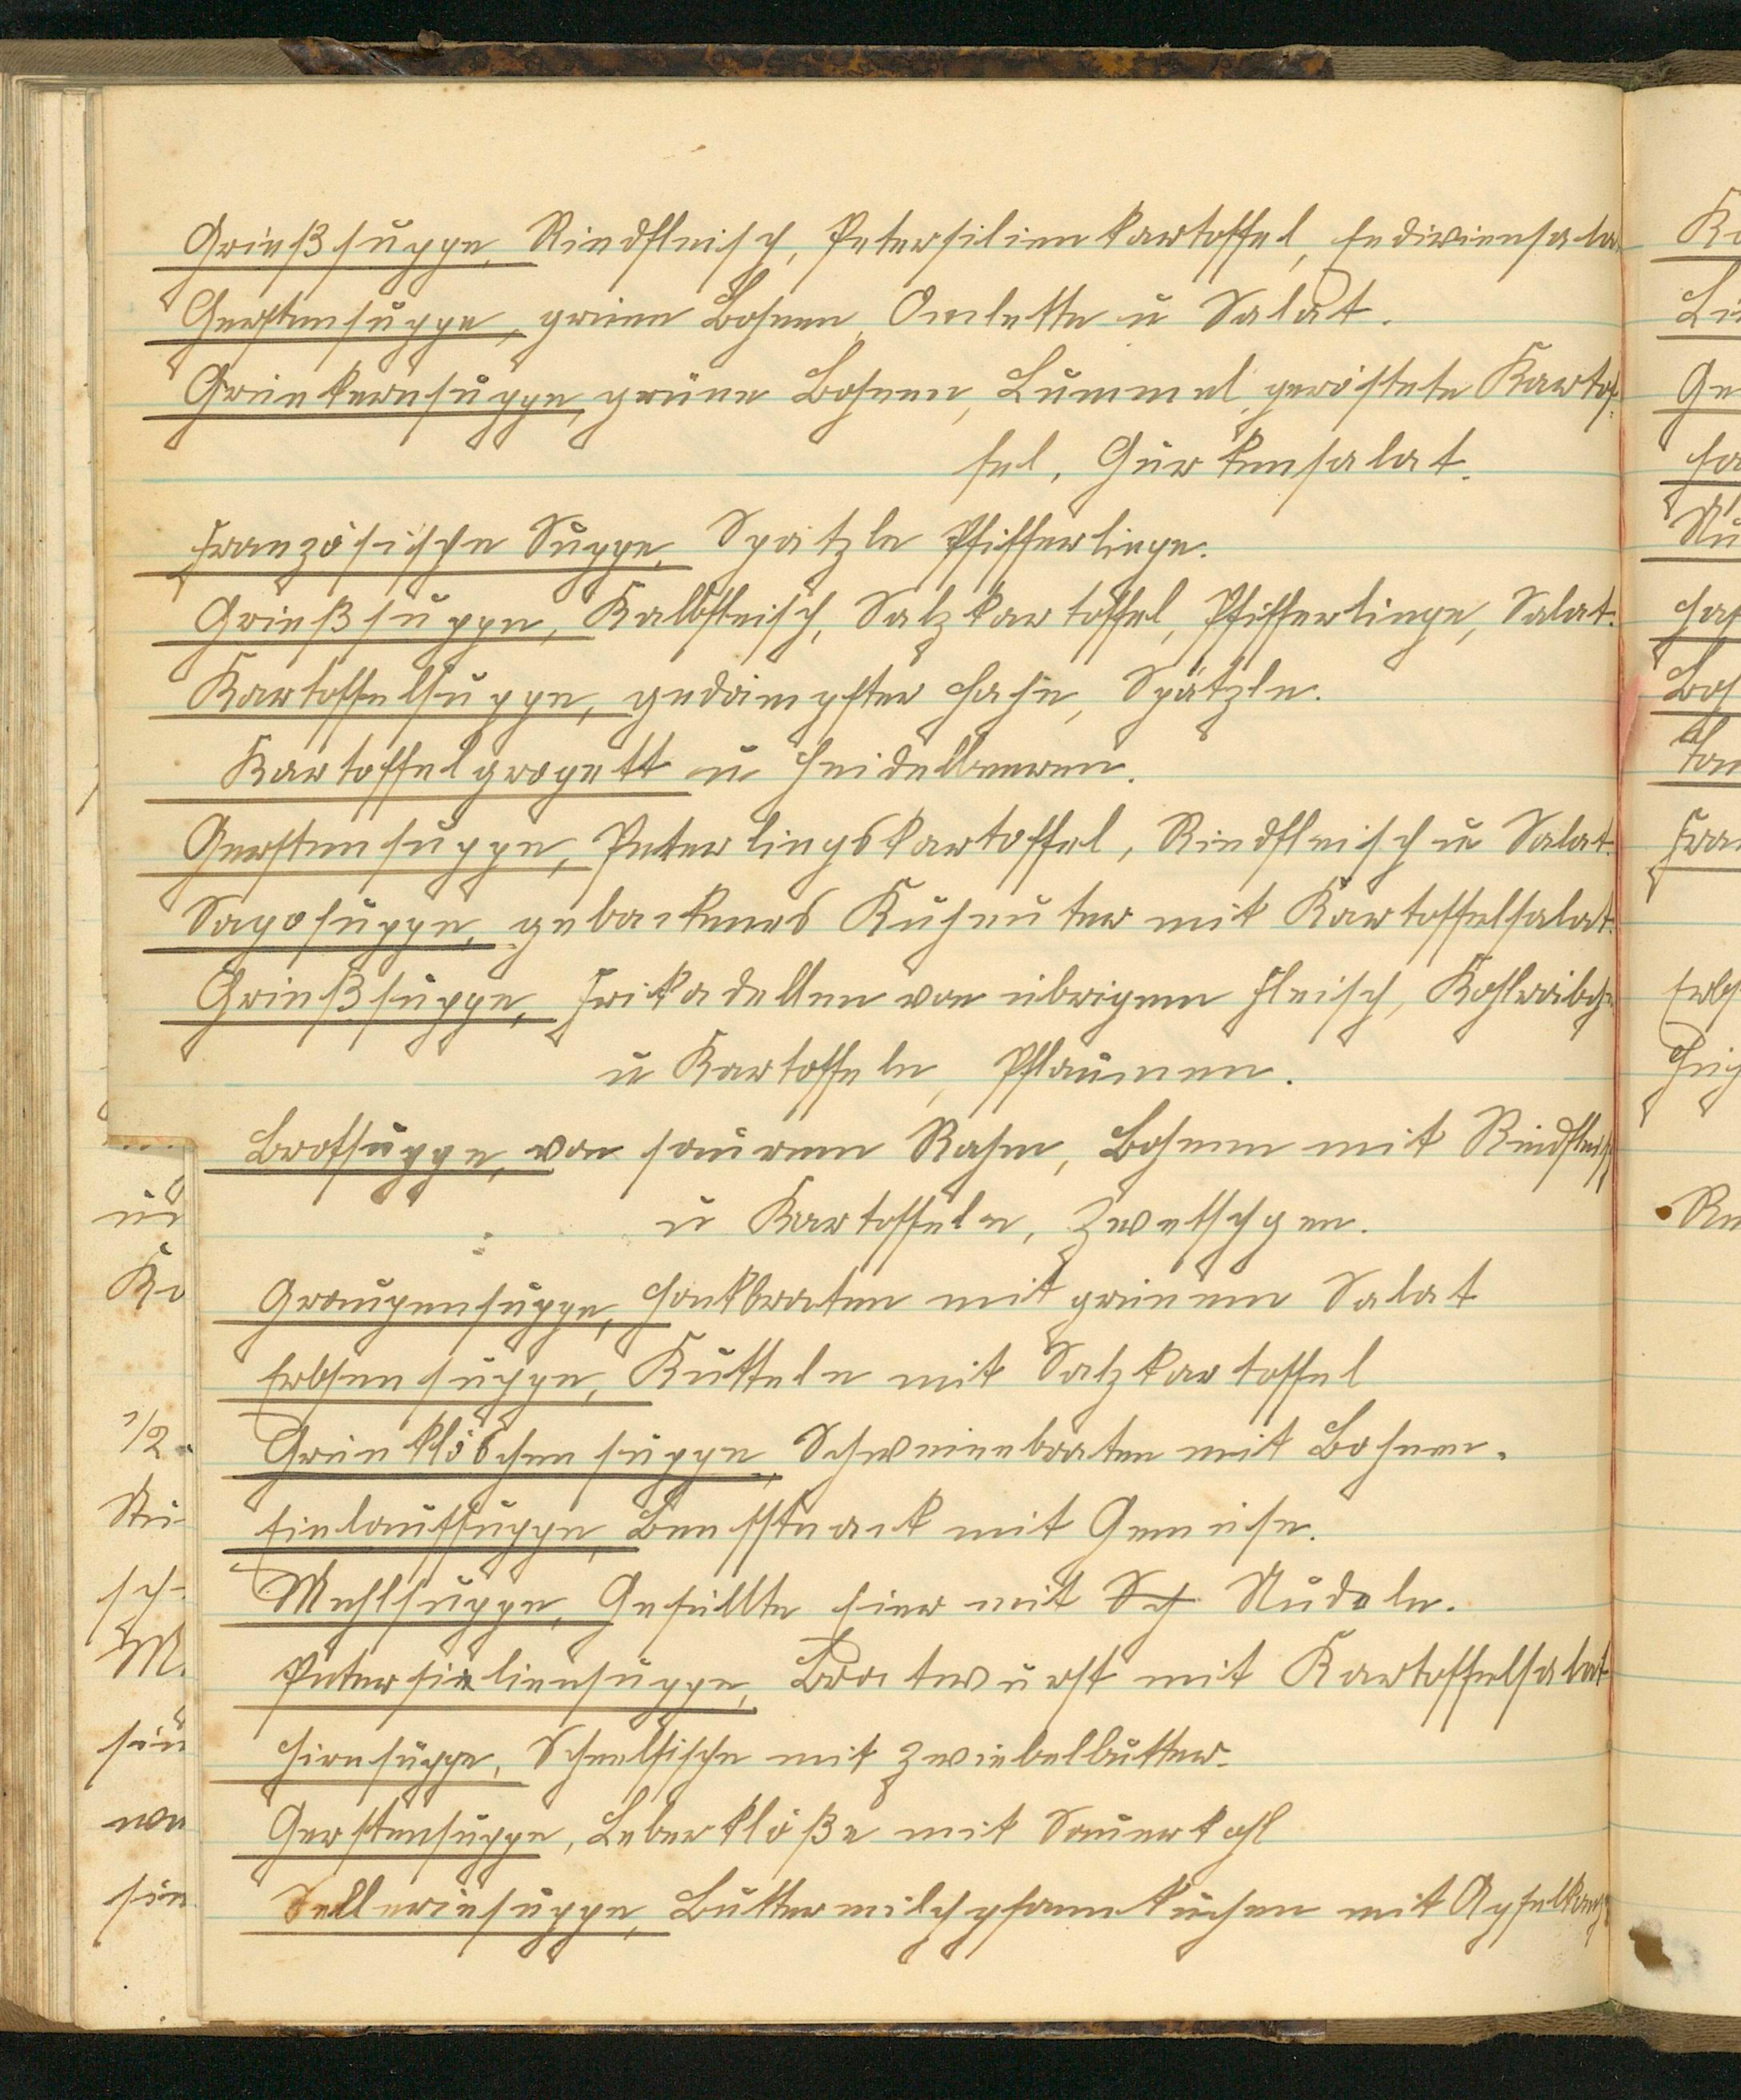 Grießsuppe, Rindfleisch, Petersilienkartoffel, Endiviensala
Gerstensuppe, grüne Bohnen, Omlette u Salat.
Grünkernsuppe, grüne Bohnen, Lummel, geröstete Kartof-
fel, Gurkensalat.
Französische Suppe, Spätzle Pfifferlinge.
Grießsuppe, Kalbfleisch, Salzkartoffel, Pfifferlinge, Salat.
Kartoffelsuppe, gedämpfter Hase, Spätzle.
Kartoffelgropett u Heidelbeeren.
Gerstensuppe, Peterlingskartoffel, Rindfleisch u Salat.
Sagosuppe, gebackenes Kuheuter mit Kartoffelsalat.
Grießsuppe, Frikadellen von übrigem Fleisch, Kohlräbche
u Kartoffeln, Pflaumen.
Brotsuppe, von saurem Rahm, Bohnen mit Rindfleisch
u Kartoffeln, Zwetschgen.
Graupensuppe, Hackbraten mit grünem Salat
Erbsensuppe, Kutteln mit Salzkartoffel
Grünklöschensuppe, Schweinebraten mit Bohnen.
Einlaufsuppe, Beefsteack mit Gemüse.
Mehlsuppe, Gefüllte Eier mit Sch Nudeln.
Petersilliensuppe, Bratwurst mit Kartoffelsalat
Hirnsuppe, Schellfische mit Zwiebelbutter.
Gerstensuppe, Leberklöße mit Sauerkohl
Selleriesuppe, Buttermilchpfannkuchen mit Apfelkomp